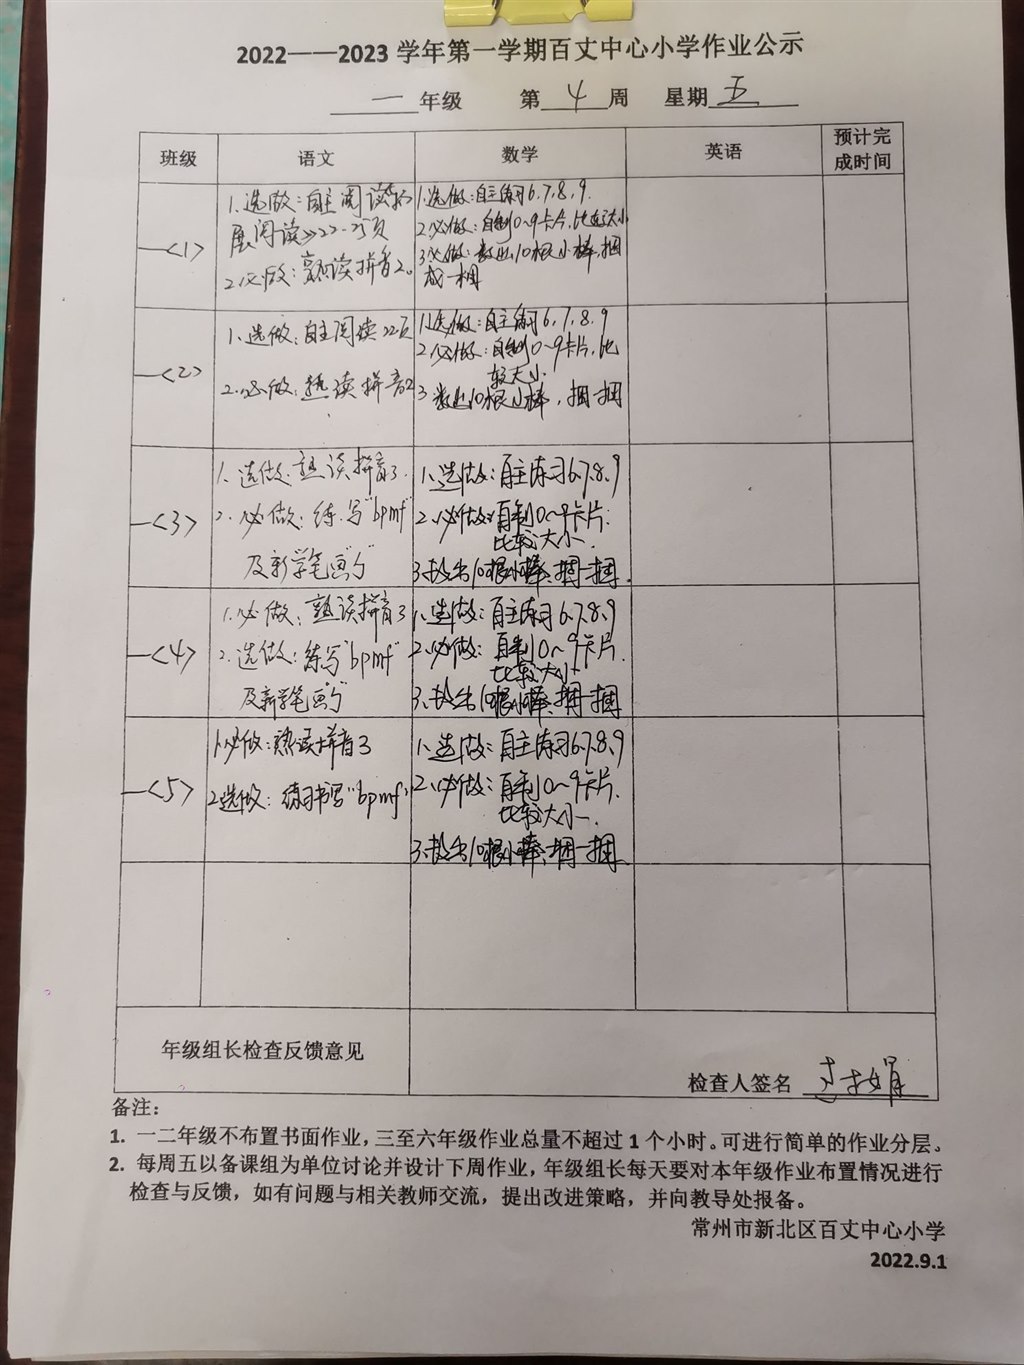 2022——2023 学年第一学期百丈中心小学作业公示
一 年级 第 4 周 星期 五
班级 语文 数学 英语 预计完成时间
一<1>
1.选做:自主阅读拓
展阅读》22-25页
2.必做:熟读拼音2。
1.选做:自主练习6.7.8.9.
2.必做:自制0~9卡片,比较大小
3必做:数出10根小棒,捆
成一捆
一<2>
1.选做:自主阅读22页
2.必做:熟读拼音2
1.选做:自主练习6.7.8.9
2必做:自制0~9卡片,比
较大小.
3 数出10根小棒,捆一捆
一<3>
1.选做:熟读拼音3.
2.必做:练写"bpmf"
及新学笔画"㇉"
1.选做:自主练习6.7.8.9
2.必做:自制0~9卡片.
比较大小.
3.数出10根小棒,捆一捆.
一<4>
1.必做:熟读拼音3
2.选做:练写"bpmf"
及新学笔画"㇉"
1.选做:自主练习6.7.8.9
2.必做:自制0~9卡片.
比较大小
3.数出10根小棒,捆一捆
一<5>
1.必做:熟读拼音3
2选做:练习书写"bpmf"
1.选做:自主练习6.7.8.9
2.必做:自制0~9卡片.
比较大小.
3.数出10根小棒,捆一捆
年级组长检查反馈意见
检查人签名
备注:
1. 一二年级不布置书面作业,三至六年级作业总量不超过 1 个小时。可进行简单的作业分层。
2. 每周五以备课组为单位讨论并设计下周作业,年级组长每天要对本年级作业布置情况进行
检查与反馈,如有问题与相关教师交流,提出改进策略,并向教导处报备。
常州市新北区百丈中心小学
2022.9.1